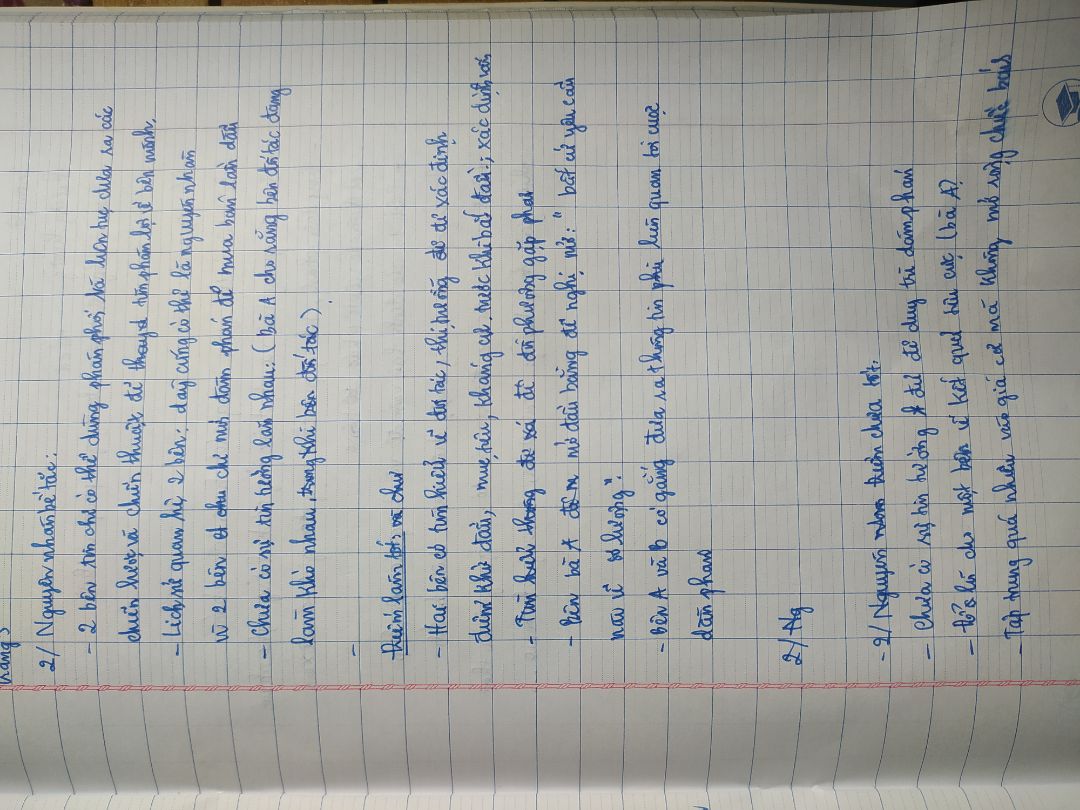 trang 3
2/ Nguyên nhân bế tắc:
- 2 bên tin chỉ có thể dùng phân phối và liên tục đưa ra các
chiến lược và chiến thuật để thay đổi tìm phần lợi về bên mình.
- Lịch sử quan hệ 2 bên: đây cũng có thể là nguyên nhân
vì 2 bên chỉ mới đàm phán để mua bán lần đầu
- Chưa có sự tin tưởng lẫn nhau: (bà A cho rằng bên đối tác đang
làm khó nhau, trong khi bên đối tác)
-
điểm làm tốt và chư
- Hai bên có tìm hiểu về đối tác, thị trường để xác định
điểm khởi đầu, mục tiêu, kháng cự trước khi bắt đầu; xác định
- Tìm hiểu vấn đề đối phương gặp phải
- Bên bà A mở đầu bằng đề nghị mở: " bất cứ yêu cầu
nào về số lượng".
- Bên A và B cố gắng đưa ra thông tin liên quan tới cuộc
đàm phán
2/ Ng
- 2/ Nguyên nhân chưa tốt.
- Chưa có sự tin tưởng để duy trì đàm phán
- đổ lỗi cho một bên về kết quả tiêu cực (bà A)
- Tập trung quá nhiều vào giá cả mà không mở rộng chiếc bánh